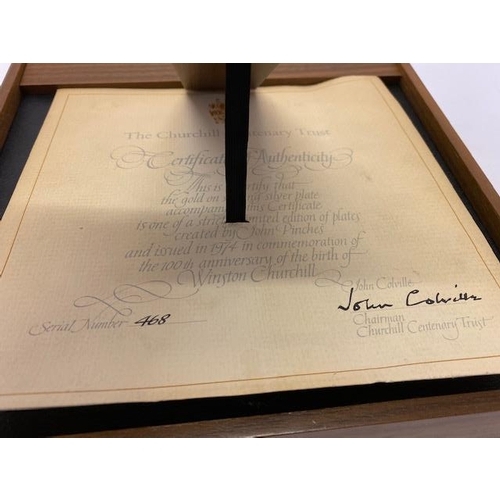 The Churchill Centenary Trust
Certificate Authenticity
This is to certify that
the gold on silver plate
accompanying this Certificate
is one of a strictly limited edition of plates
created by John Pinches
and issued in 1974 in commemoration of
the 100th anniversary of the birth of
Winston Churchill
John Colville
John Colville
Chairman
Churchill Centenary Trust
Serial Number 468